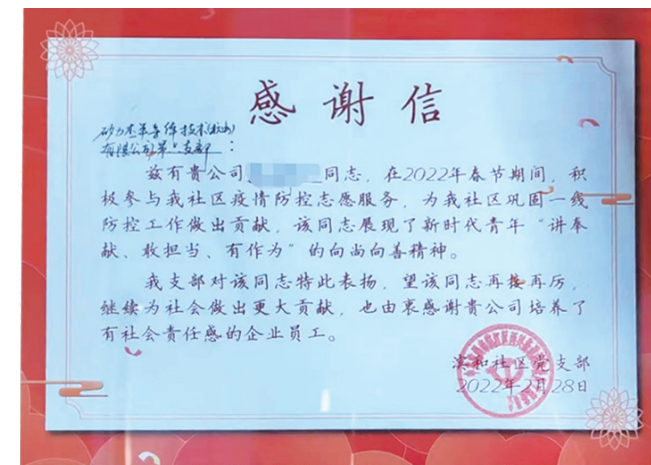 感谢信
矽力杰半导体技术(杭州)
有限公司第二支部：
兹有贵公司 同志，在2022年春节期间，积
极参与我社区疫情防控志愿服务，为我社区巩固一线
防控工作做出贡献，该同志展现了新时代青年“讲奉
献、敢担当、有作为”的向尚向善精神。
我支部对该同志特此表扬，望该同志再接再厉，
继续为社会做出更大贡献，也由衷感谢贵公司培养了
有社会责任感的企业员工。
滨和社区党支部
2022年2月28日